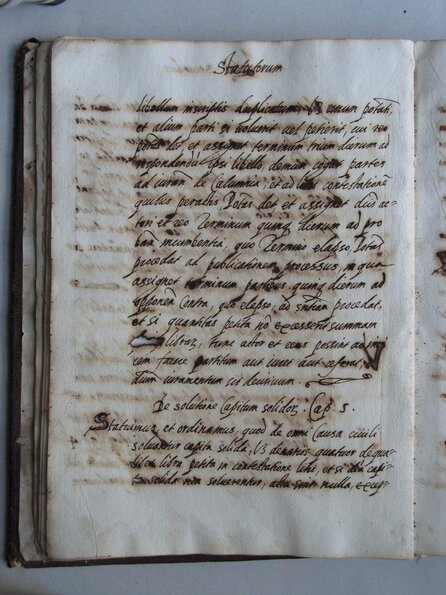 Statutorum
libellum in scriptis duplicatum, Vz unum potati,
et alium parti si voluerit vel petierit, cui reo
potas det et assignet terminum trium dierum ad
respondendum ipsi libello, demum cogat partes
ad iuram de Calumnia, et ad litis contestatione
quibus peractis Potas det et assignet dicto ac-
tori et reo Terminum quinq dierum ad pro
bam incumbentia, quo Termino elapso, Potas
procedat ad publicationem processus, in qua
assignet terminum partibus quinq dierum ad
opponem contra, quo elapso, ad sniam procedat,
et si quantitas petita no excesserit summam
librar, tunc actor et reus possint
rem facere partitum aut iurer aut referat,
dum iuramentum sit decisivum.
De solutione Capitum solidor. Cap. 5.
Statuimus, et ordinamus, quod de omni Causa civili
solvantur capita solida, Vz denarios quatuor de qua-
libet libra petita in contestatione litis, et si dicta capi-
ta solida non solverentur, acta sint nulla,